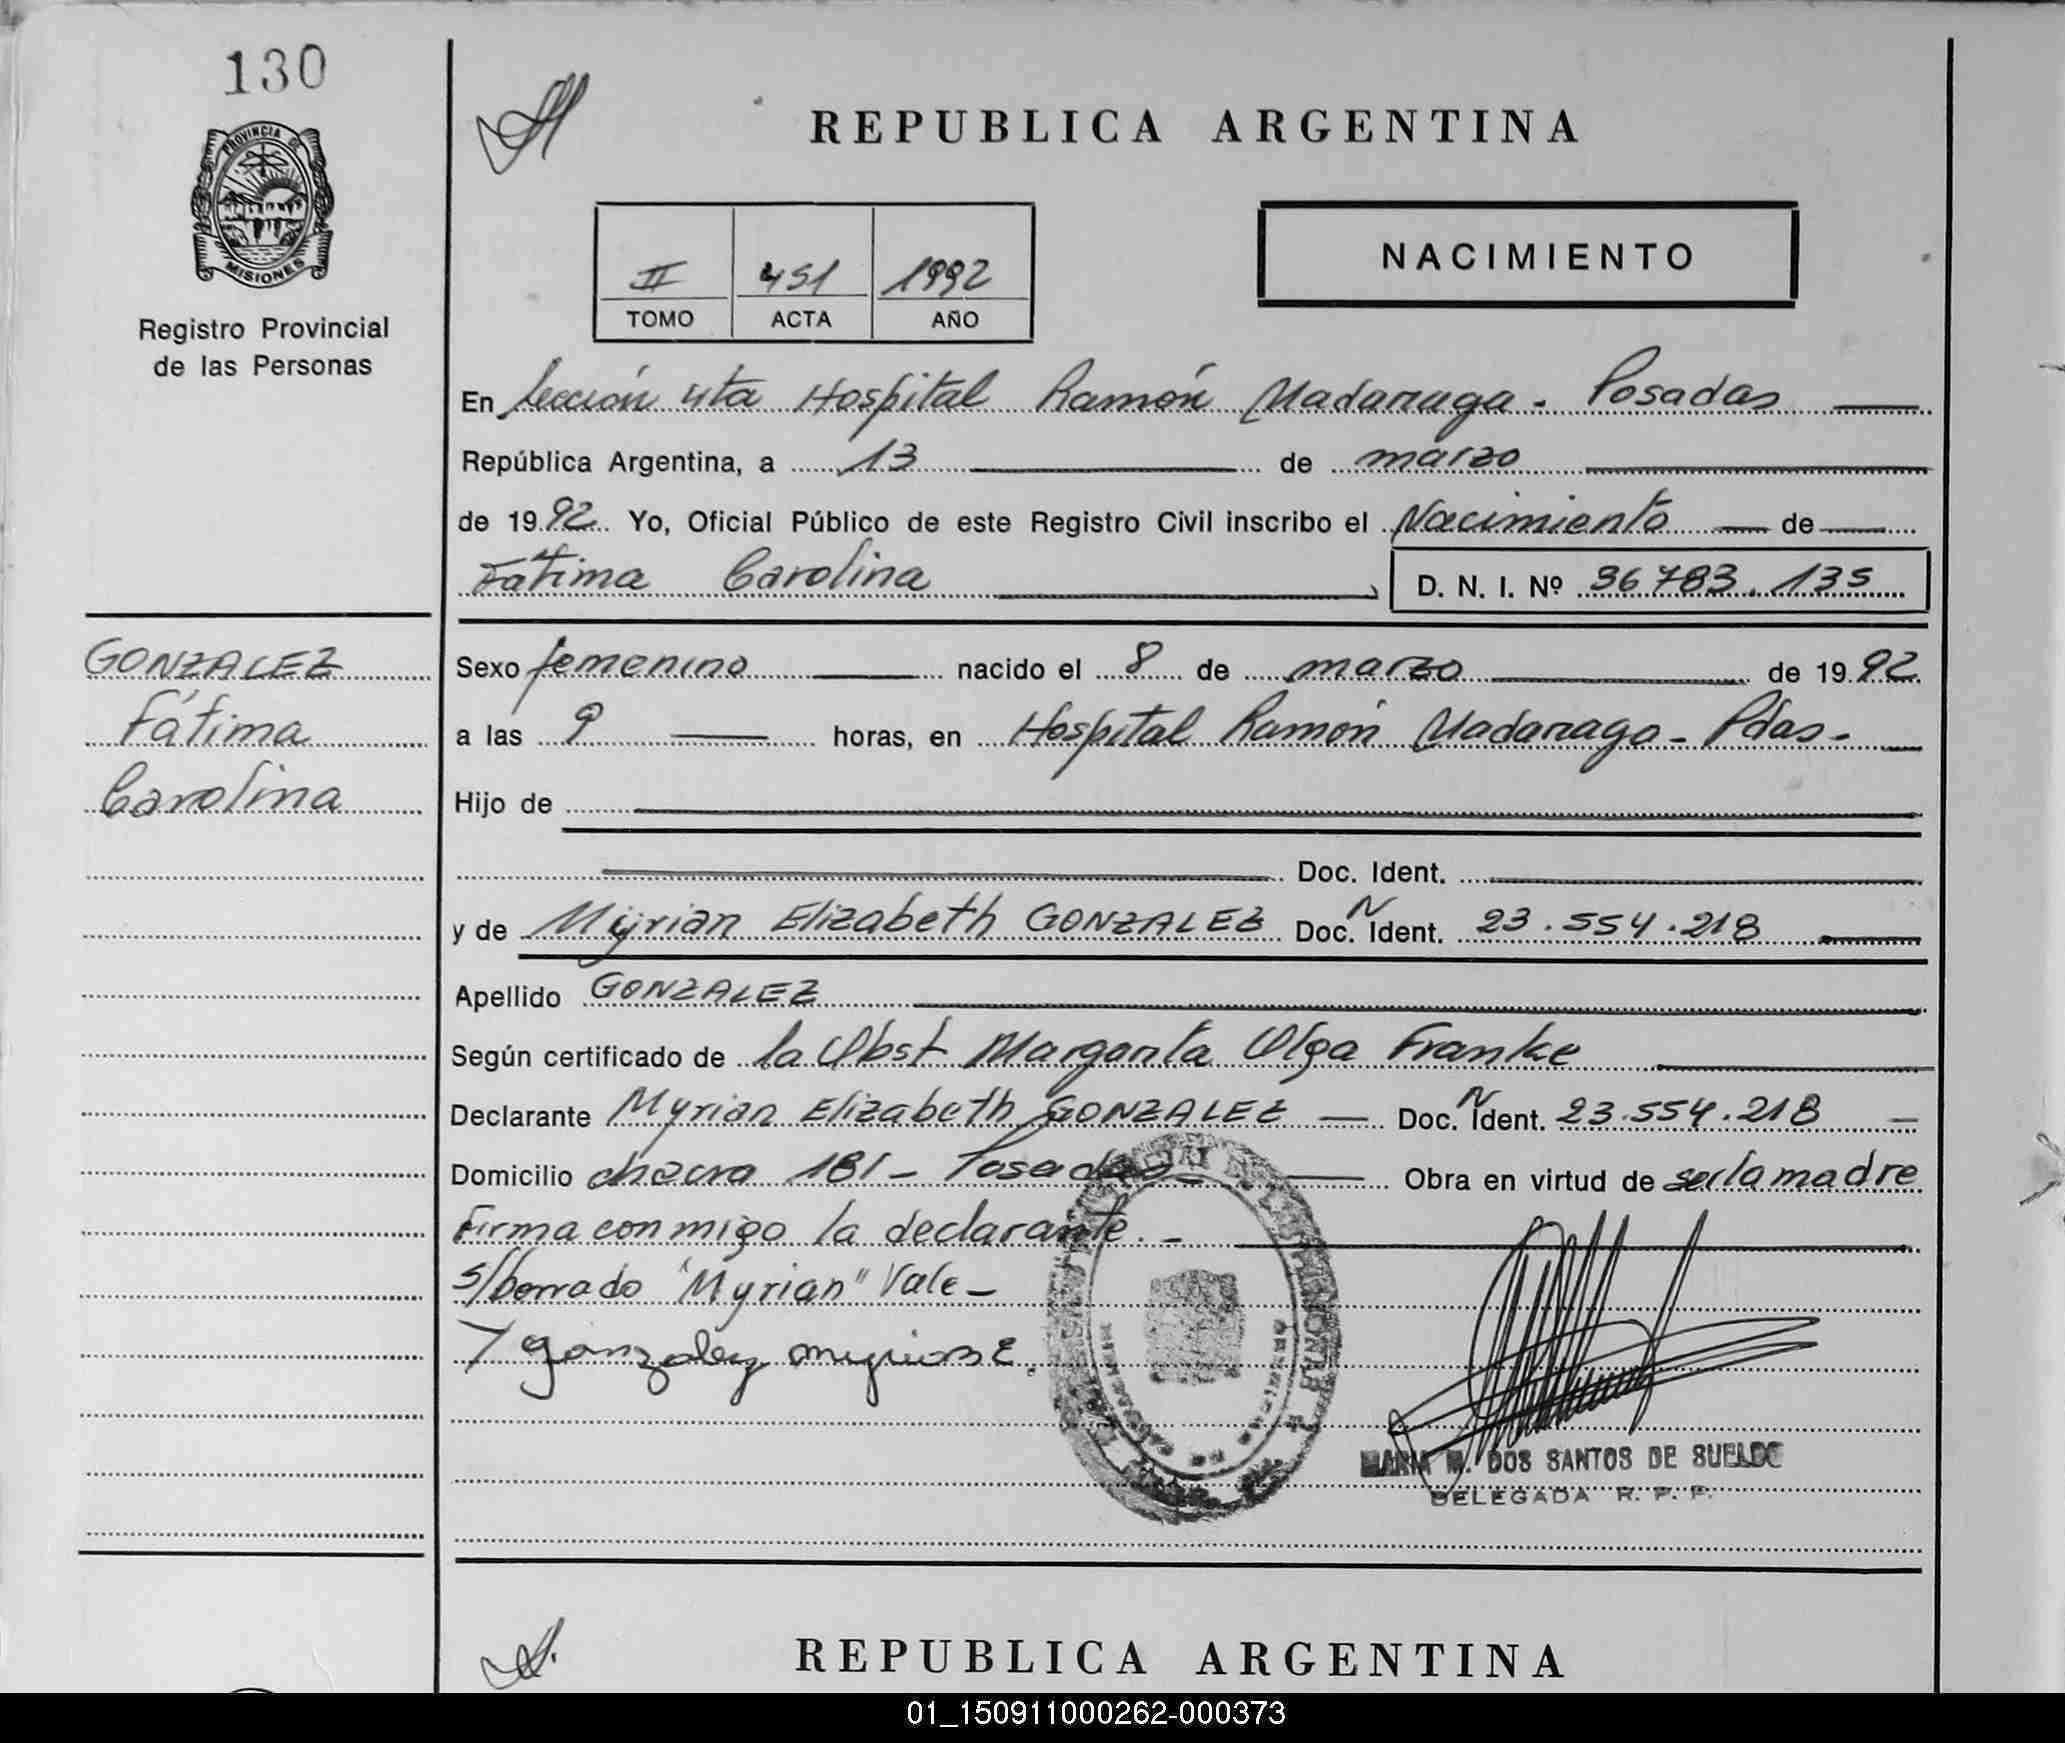 130
PROVINCIA DE
MISIONES
Registro Provincial
de las Personas
GONZALEZ
Fátima
Carolina
REPUBLICA ARGENTINA
II 451 1992
TOMO ACTA AÑO
NACIMIENTO
En Sección 4ta Hospital Ramón Madariaga - Posadas
República Argentina, a 13 de marzo
de 1992 Yo, Oficial Público de este Registro Civil inscribo el Nacimiento de
Fátima Carolina D. N. I. Nº 36783.135
Sexo femenino nacido el 8 de marzo de 1992
a las 9 horas, en Hospital Ramón Madariaga - Pdas -
Hijo de
Doc. Ident.
y de Myrian Elizabeth GONZALEZ Doc. N Ident. 23.554.218
Apellido GONZALEZ
Según certificado de la Obst Margarita Olga Franke
Declarante Myrian Elizabeth GONZALEZ Doc. N Ident. 23.554.218
Domicilio chacra 181 - Posadas - Obra en virtud de ser la madre
Firma conmigo la declarante. -
s/borrado "Myrian" Vale -
Gonzalez myrian E.
MARIA M. DOS SANTOS DE SUELDO
DELEGADA R. P. P.
REPUBLICA ARGENTINA
01_150911000262-000373